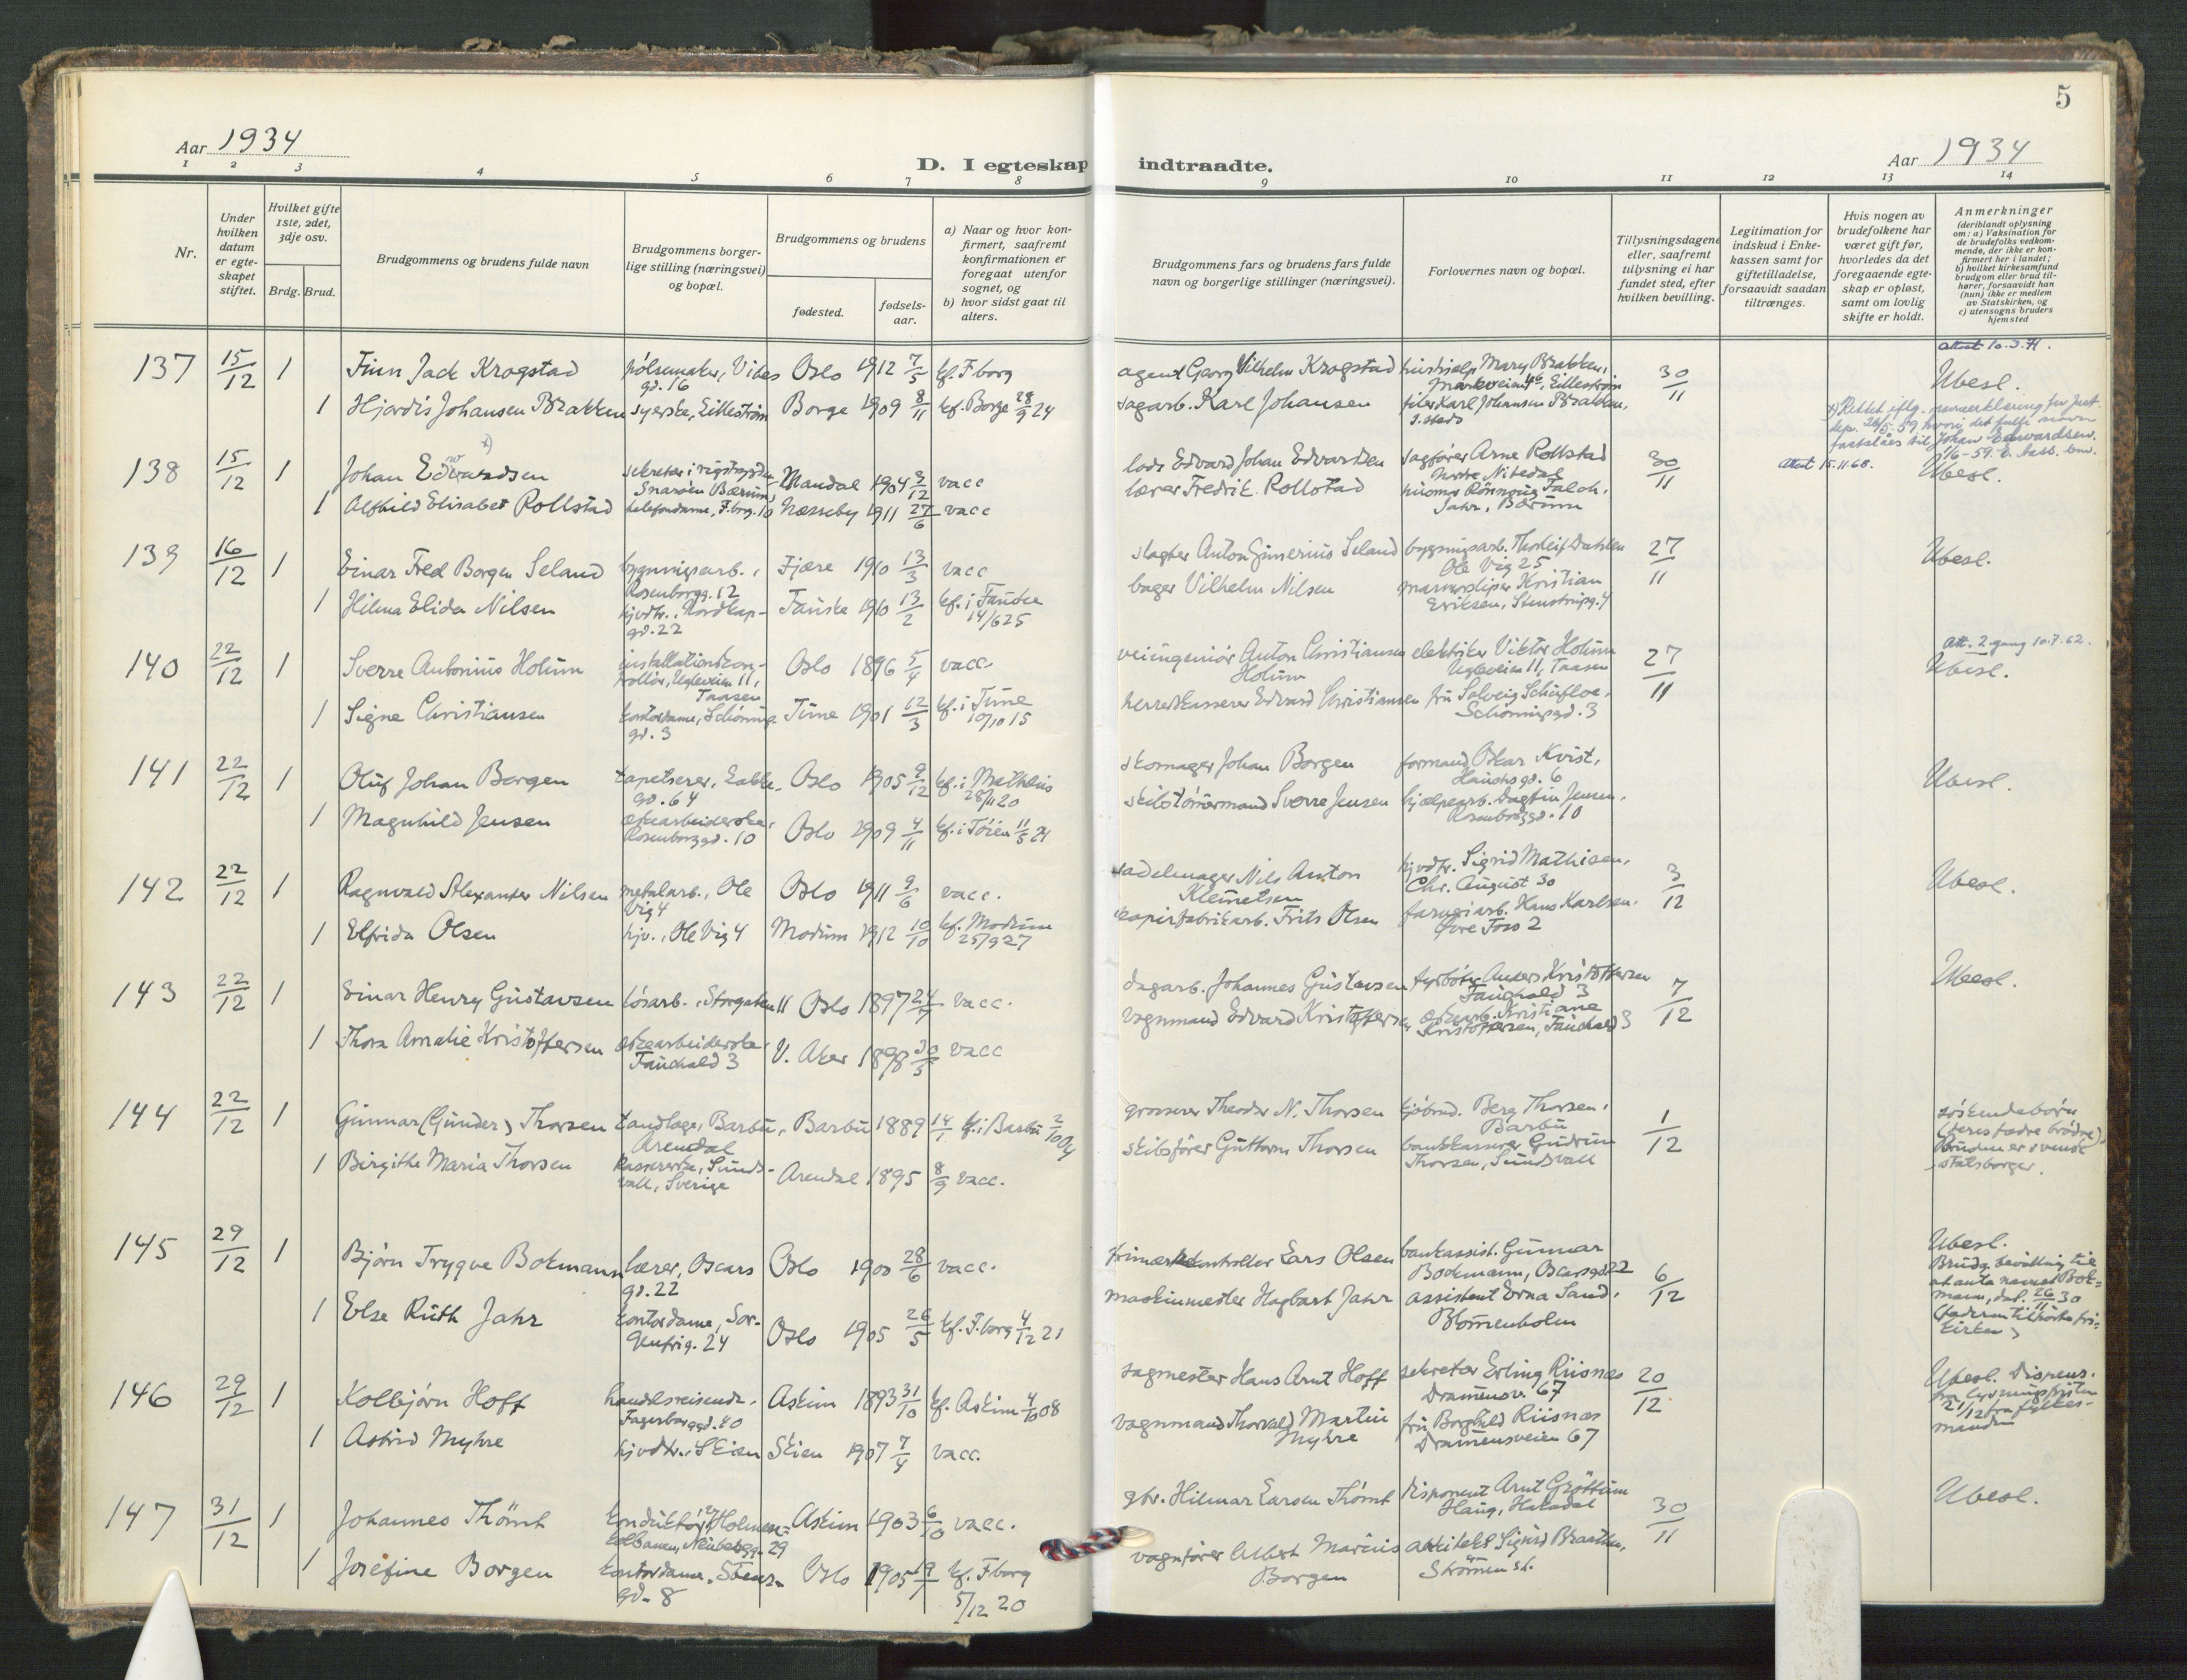 5
Aar 1934
D. I egteskap indtraadte.
Aar 1934
1 2 3 4 5 6 7 8 9 10 11 12 13 14
Nr.
Under hvilken datum er egteskapet stiftet.
Hvilket gifte 1ste, 2det, 3dje osv.
Brdg. Brud.
Brudgommens og brudens fulde navn
Brudgommens borgerlige stilling (næringsvei) og bopæl.
Brudgommens og brudens
fødested.
fødselsaar.
a) Naar og hvor konfirmert, saafremt konfirmationen er foregaat utenfor sognet, og
b) hvor sidst gaat til alters.
Brudgommens fars og brudens fars fulde navn og borgerlige stillinger (næringsvei).
Forlovernes navn og bopæl.
Tillysningsdagene eller, saafremt tillysning ei har fundet sted, efter hvilken bevilling.
Legitimation for indskud i Enkekassen samt for giftetilladelse, forsaavidt saadan tiltrænges.
Hvis nogen av brudefolkene har været gift før, hvorledes da det foregaaende egteskap er opløst, samt om lovlig skifte er holdt.
Anmerkninger
(deriblandt oplysning om: a) Vaksination for de brudefolks vedkommende, der ikke er konfirmert her i landet;
b) hvilket kirkesamfund brudgom eller brud tilhører, forsaavidt han (hun) ikke er medlem av Statskirken, og
c) utensogns bruders hjemsted
137 15/12 1 Finn Jack Krogstad pølsemaker, Vibes gd. 16 Oslo 1912 7/5 kf. F.borg agent Georg Vilhelm Krogstad hushjelp Mary Brakken, Markveien 46, Lilleström 30/11 Ubesl.
attest 10.3.71.
1 Hjørdis Johansen Brakken syerske, Lilleström Borge 1909 8/11 kf. Borge 28/9 24 sagarb. Karl Johansen filer Karl Johansen Brakken, s. steds
138 15/12 1 Johan Edwardsen x) sekretær i rigstrygden Snarøen Bærum Mandal 1904 9/12 vacc lods Edvard Johan Edvardsen sagfører Arne Rollstad Nordre Nitedal 30/11 attest 15.11.68. Ubesl.
x) Rettet iflg. navneerklæring fra Just. dep. 26/5-59 hvori det fulle navn fastslåes til Johan Edwardsen. 1/6-59.
1 Alfhild Elisabet Rollstad telefondame, F.borg. 10 Næsseby 1911 27/6 vacc lærer Fredrik Rollstad Rønnaug Falch, Jahr, Bærum
139 16/12 1 Einar Fred Borgen Seland bygningsarb., Rosenborgg. 12 Fjære 1910 13/3 vacc slagter Anton Gunerius Seland bygningsarb. Thorleif Dahlen Ole Vig 25 27/11 Ubesl.
1 Hilma Elida Nilsen hjvdtr., Nordkapgd. 22 Fauske 1910 13/2 kf. i Fauske 14/6 25 bager Vilhelm Nilsen marmorsliper Kristian Eriksen, Stenstrupg. 4
140 22/12 1 Sverre Antonius Holum installationskontrollør, Ugleveien 11, Taasen Oslo 1896 5/4 vacc. veiingeniör Anton Christiansen Holum elektriker Viktor Holum Ugleveien 11, Taasen 27/11 Ubesl.
Att. 2. gang 10.7.62.
1 Signe Christiansen kontordame, Schönningsgd. 3 Time 1901 12/3 kf. i Time 10/10 15 herredskasserer Edvard Christiansen fru Solveig Schiefloe, Schönningsgd. 3
141 22/12 1 Oluf Johan Borgen tapetserer, Lakkegd. 64 Oslo 1905 9/12 kf. i Matheus 28/11 20 skomager Johan Borgen formand Oskar Kvist, Hausmsgd. 6 Ubesl.
1 Magnhild Jensen eskearbeiderske, Rosenborggd. 10 Oslo 1909 4/11 kf. i Tøien 11/5 24 skibstömmermand Sverre Jensen hjælpearb. Dagfin Jensen, Rosenborggd. 10
142 22/12 1 Ragnvald Alexander Nilsen metalarb., Ole Vig 4 Oslo 1911 9/6 vacc. sadelmager Nils Anton Klemetsen hjvdtr. Sigrid Mathisen, Chr. August 30 3/12 Ubesl.
1 Elfrida Olsen hjv., Ole Vig 4 Modum 1912 10/10 kf. Modum 25/9 27 papirfabrikarb. Frits Olsen farveriarb. Hans Karlsen, Øvre Foss 2
143 22/12 1 Einar Henry Gustavsen løsarb., Storgaten 11 Oslo 1897 24/7 vacc. dagarb. Johannes Gustavsen fyrbøter Anders Kristoffersen Fauchald 3 7/12 Ubesl.
1 Thora Amalie Kristoffersen eskearbeiderske, Fauchald 3 V. Aker 1898 30/3 vacc vognmand Edvard Kristoffersen eskearb. Kristiane Kristoffersen, Fauchald 3
144 22/12 1 Gunnar (Gunder) Thorsen tandlæge, Barbu, Arendal Barbu 1889 14/1 kf. i Barbu 2/10 04 grosserer Theodor N. Thorsen skibsred. Berg Thorsen, Barbu 1/12 søskendebørn (deres fædre brødre) Bruden er svensk statsborger.
1 Birgithe Maria Thorsen kassererske, Sundsvall, Sverige Arendal 1895 8/9 vacc. skibsfører Guttorm Thorsen bankkasserer Gudrun Thorsen, Sundsvall
145 29/12 1 Bjørn Trygve Bokmann lærer, Oscars gd. 22 Oslo 1900 28/6 vacc. frimerkekontrollør Lars Olsen bankassist. Gunnar Bockmann, Oscarsgd. 22 6/12 Ubesl. Brudg. bevilling til at anta navnet Bokmann, dat. 26/11 30 (faderen tilhørte frikirken)
1 Else Ruth Jahr kontordame, Sorgenfrig. 24 Oslo 1905 26/5 kf. F.borg 4/12 21 maskinmester Hagbart Jahr assistent Erna Sand, Blommenholm
146 29/12 1 Kolbjørn Hoff handelsreisende, Fagerborggd. 40 Askim 1893 31/10 kf. Askim 4/10 08 sagmester Hans Arnt Hoff sekretær Erling Riisnæs Drammensv. 67 20/12 Ubesl. Dispens. fra lysningsfristen 21/12 fra fylkesmanden
1 Astrid Myhre hjvdtr., Skien Skien 1907 7/4 vacc. vognmand Thorvald Martin Myhre fru Borghild Riisnæs Drammensveien 67
147 31/12 1 Johannes Thömt konduktør v/ Holmenkolbanen, Neubergg. 29 Askim 1903 6/10 vacc. gbr. Hilmar Larsen Thömt disponent Arnt Grøttum Haug, Hakadal 30/11 Ubesl.
1 Josefine Borgen kontordame, Stensgd. 8 Oslo 1905 19/7 kf. F.borg 5/12 20 vognfører Albert Marius Borgen arkitekt Sigurd Braathen, Strömmen st.